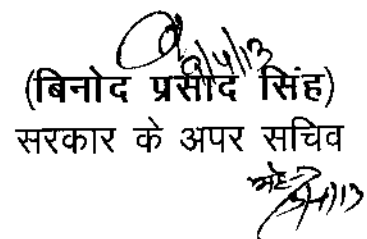 (बिनोद प्रसाद सिंह)
सरकार के अपर सचिव